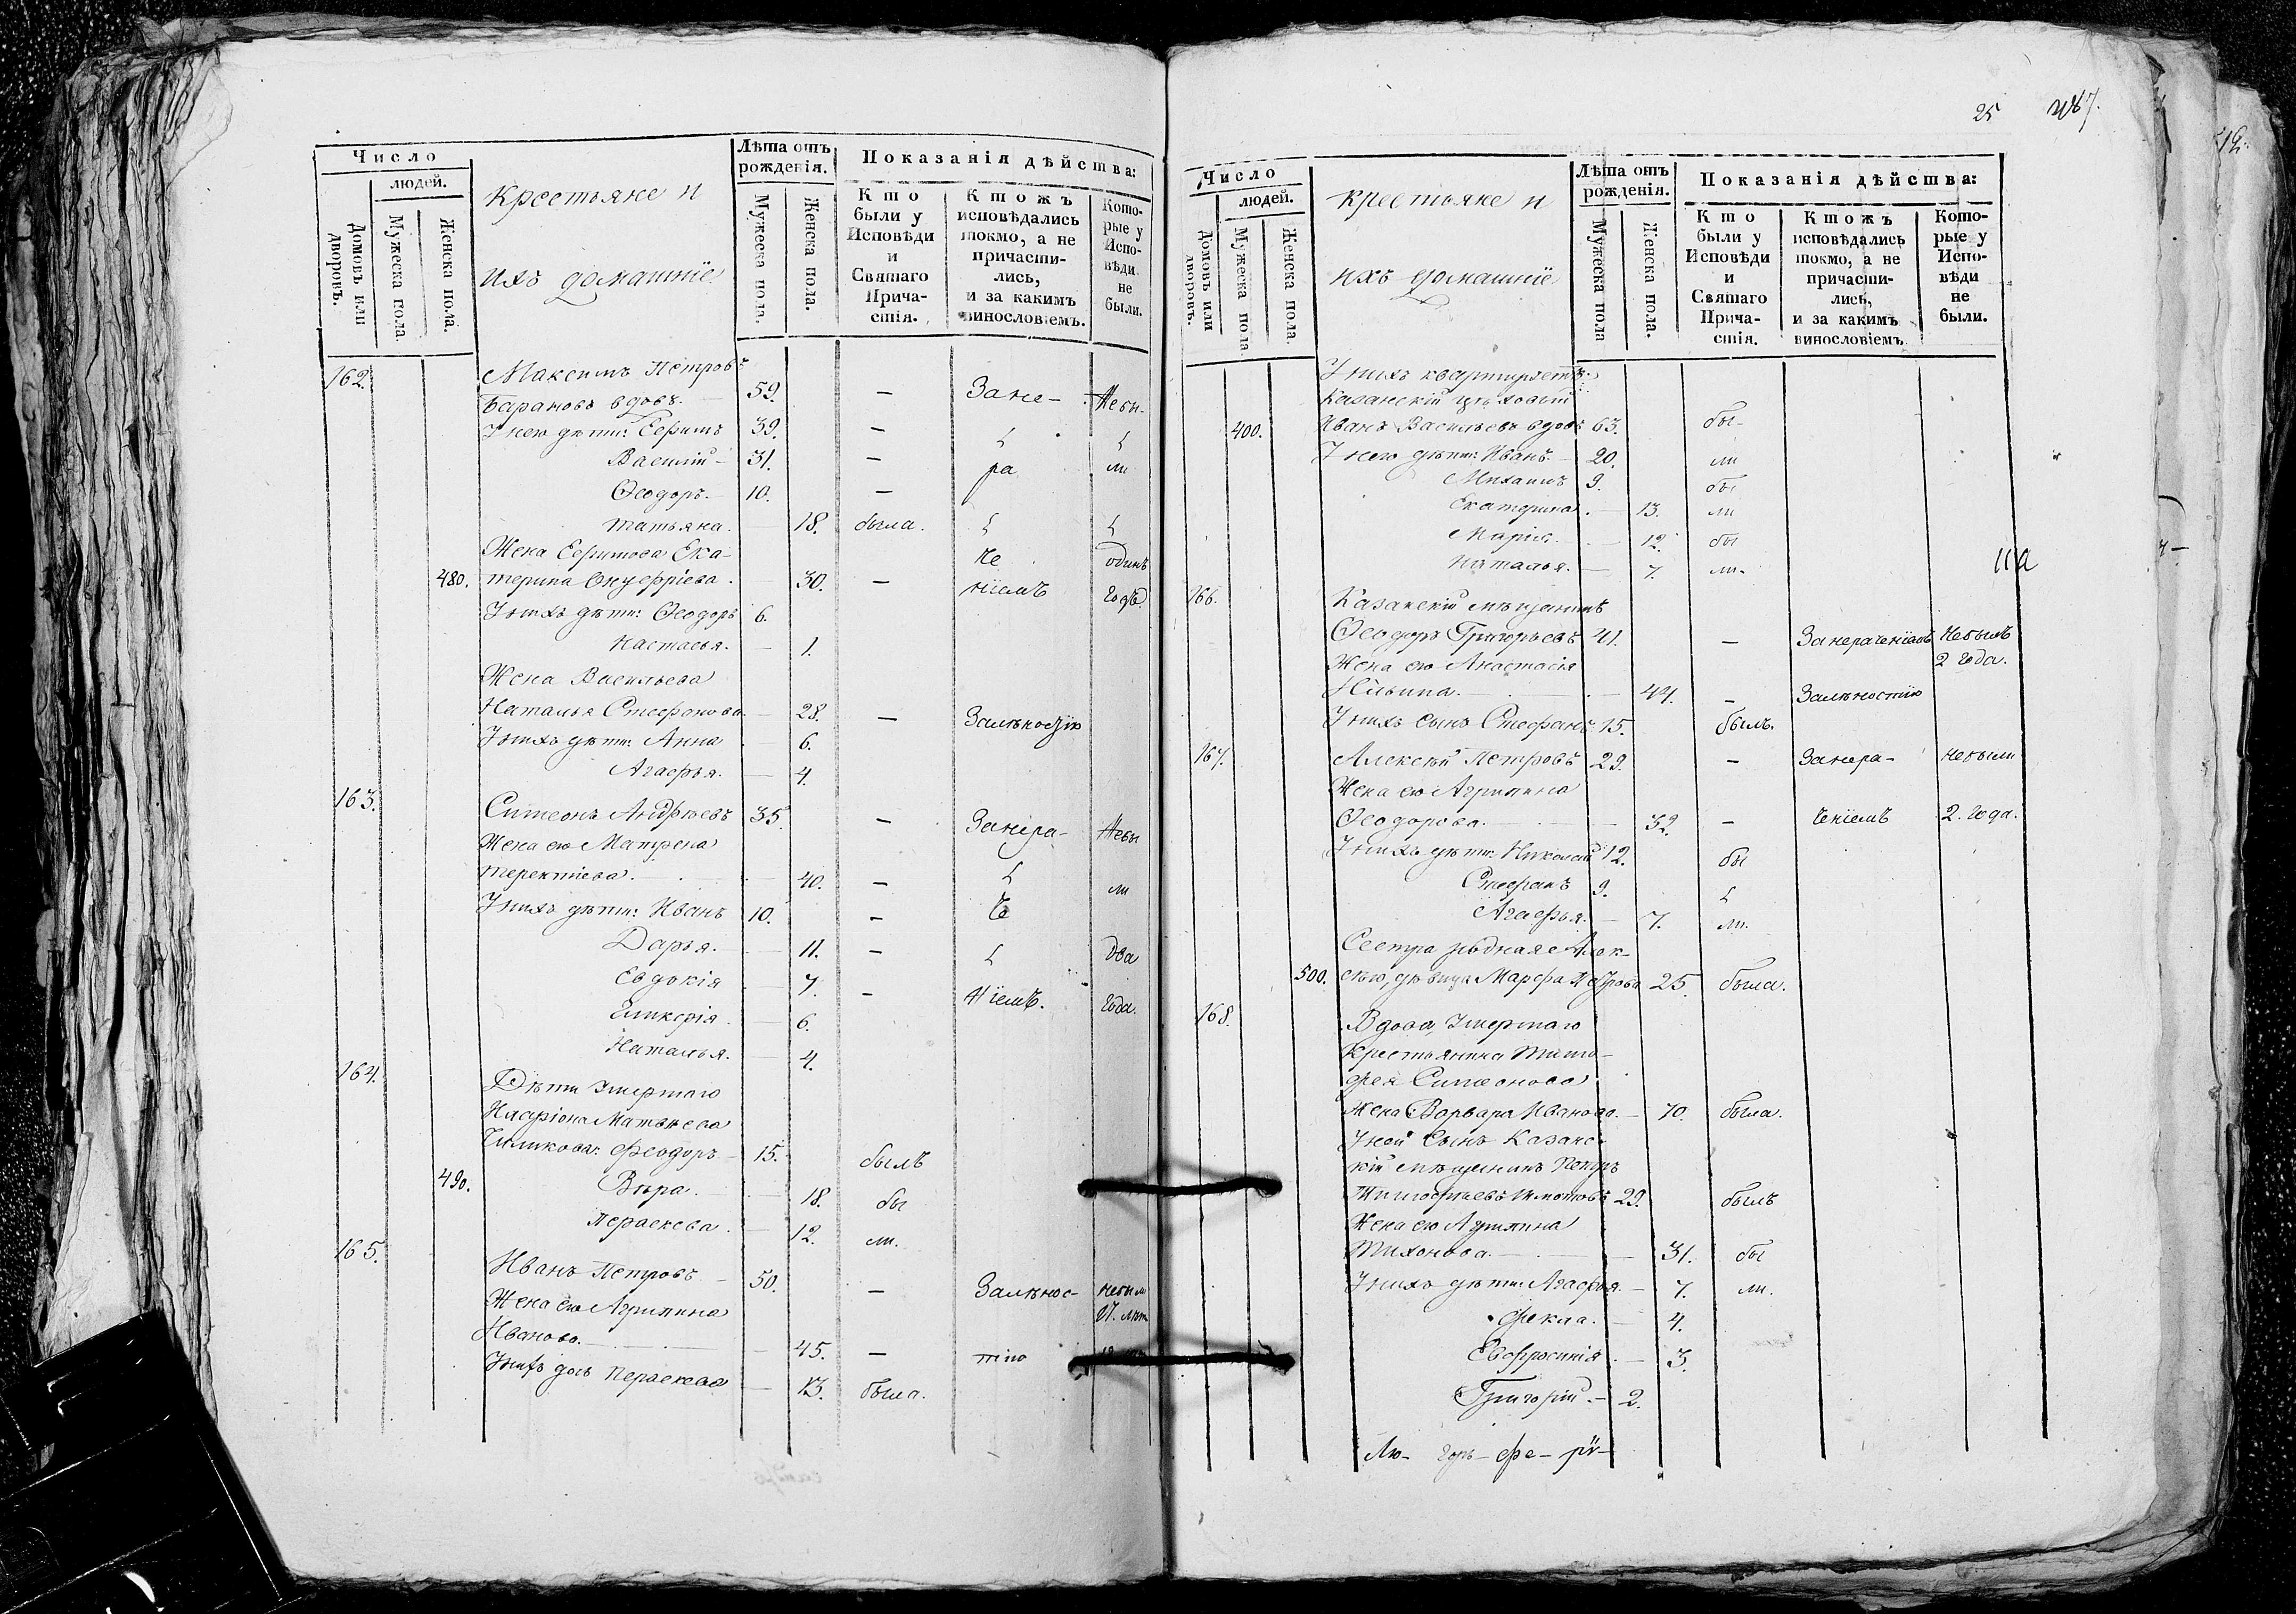 Число
людей.
Домовъ или дворовъ.
Мужеска пола
Женска пола.
Крестьяне и
ихъ домашніе
Лѣта отъ рожденія.
Мужеска пола.
Женска пола.
Показанія дѣйства:
Кто были у Исповѣди и Святаго Причастія.
Ктожъ исповѣдались токмо, а не причастились, и за какимъ винословіемъ.
Которые у Исповѣди не были.
162. Максимъ Петровъ
Барановъ вдовъ. 59. — Зане- Небы-
У него дѣти: Ефимъ 39. —
Василій — 31. — ра ли
Ѳеодоръ. — 10. —
Татьяна. — 18. была.
Жена Ефимова Ека- че одинъ
480. терина Онуфріева. — 30. — ніемъ годъ
У нихъ дѣти: Ѳеодоръ 6.
Настасья. — 1.
Жена Васильева
Наталья Стефанова. — 28. — За лѣностію
У нихъ дѣти: Анна 6.
Агафья. — 4.
163. Симеонъ Андреевъ 35. — Занера- Небы
Жена его Матрена
Терентіева. — 40. — ли
У нихъ дѣти: Иванъ 10. — че
Дарья. — 11. — два
Евдокія — 7. — ніемъ. года.
Гликерія. — 6.
Наталья. — 4.
164. Дѣти умершаго
Иларіона Матвѣева
Феодоръ — 15. былъ
490. Вѣра. — 18. бы
Параскева. — 12. ли.
165. Иванъ Петровъ — 50. — За лѣнос- небыли
Жена его Агрипина
Иванова. — 45. — тію
У нихъ дочь Параскева — 13. была.
25
Число
людей.
Домовъ или дворовъ.
Мужеска пола
Женска пола.
Крестьяне и
ихъ домашніе
Лѣта отъ рожденія.
Мужеска пола
Женска пола.
Показанія дѣйства:
Кто были у Исповѣди и Святаго Причастія.
Ктожъ исповѣдались токмо, а не причастились, и за какимъ винословіемъ
Которые у Исповѣди не были.
У нихъ квартируетъ:
Казанскій цѣховый
400. Иванъ Васильевъ вдовъ 63. бы-
У него дѣти: Иванъ. — 20. ли
Михаилъ 9. бы
Екатерина. — 13. ли
Марія. — 12. бы
Наталья. — 7. ли.
166. Казанскій мѣщанинъ
Ѳеодоръ Григорьевъ 41. — За нераченіемъ Небылъ
2 года.
Жена его Анастасія
Ильина. — 44. — За лѣностію
У нихъ сынъ Стефанъ 15. былъ.
167. Алексѣй Петровъ 29. — Занера- небыли
Жена его Агрипина
Ѳеодорова. — 32. — ченіемъ 2. года.
У нихъ дѣти: Николай 12. бы
Стефанъ 9.
Агафья. — 7. ли.
Сестра родная Алек-
500. сѣю, дѣвица Марфа Петрова 25. была.
168. Вдова, умершаго
Крестьянина Тимо-
фея Симеонова
Жена Варвара Иванова. — 70. была.
У ней сынъ Казанс-
кій мѣщанинъ Петръ
Тимофѣевъ 29. былъ
Жена его Агрипина
Тихонова. — 31. бы
У нихъ дѣти: Агафья. — 7. ли.
Фекла. — 4.
Евфросинія. — 3.
Григорій. — 2.